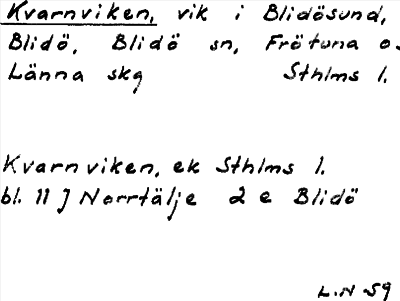 Kvarnviken, vik i Blidösund,
Blidö, Blidö sn, Frötuna o.
Länna skg Sthlms l.
Kvarnviken, ek Sthlms l.
bl. 11 J Norrtälje 2 e Blidö
L.N 59